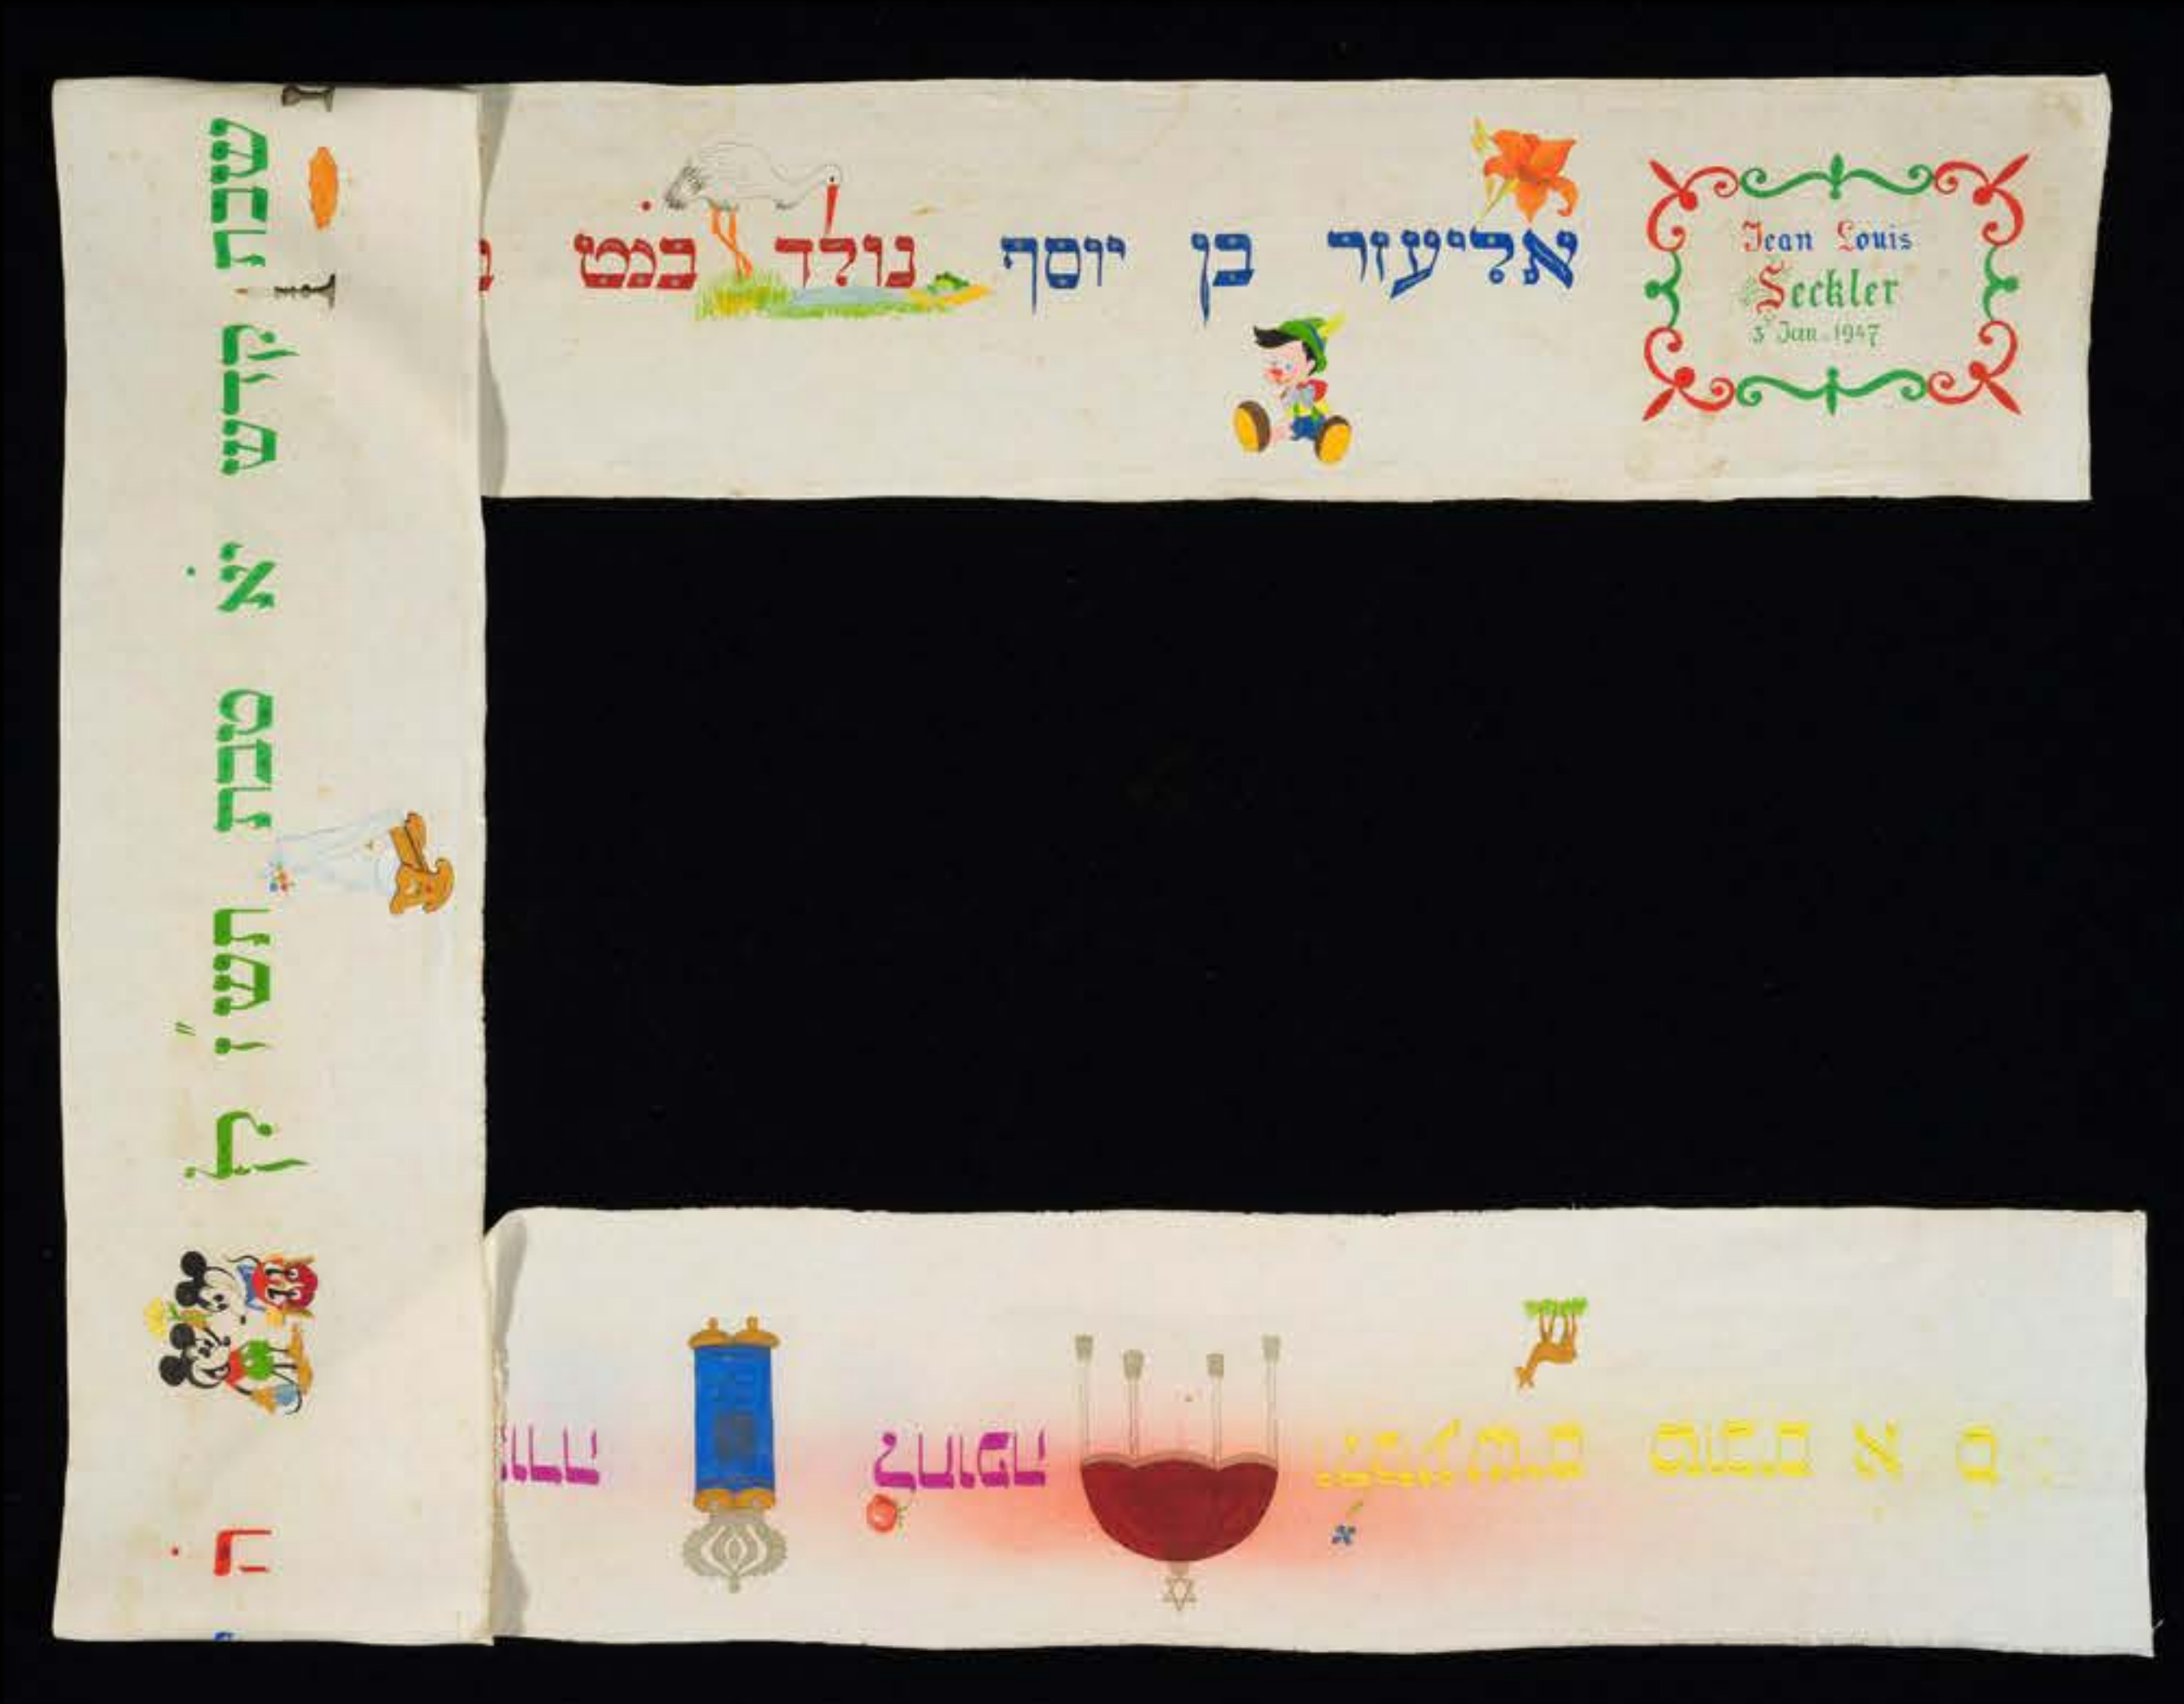 Jean Louis
Seckler
3 Jan. 1947
אליעזר בן יוסף נולד במ׳ט
שבת קדש י׳א טבת תש״ז
ה׳
לחופה ולמעשים טובים א ס